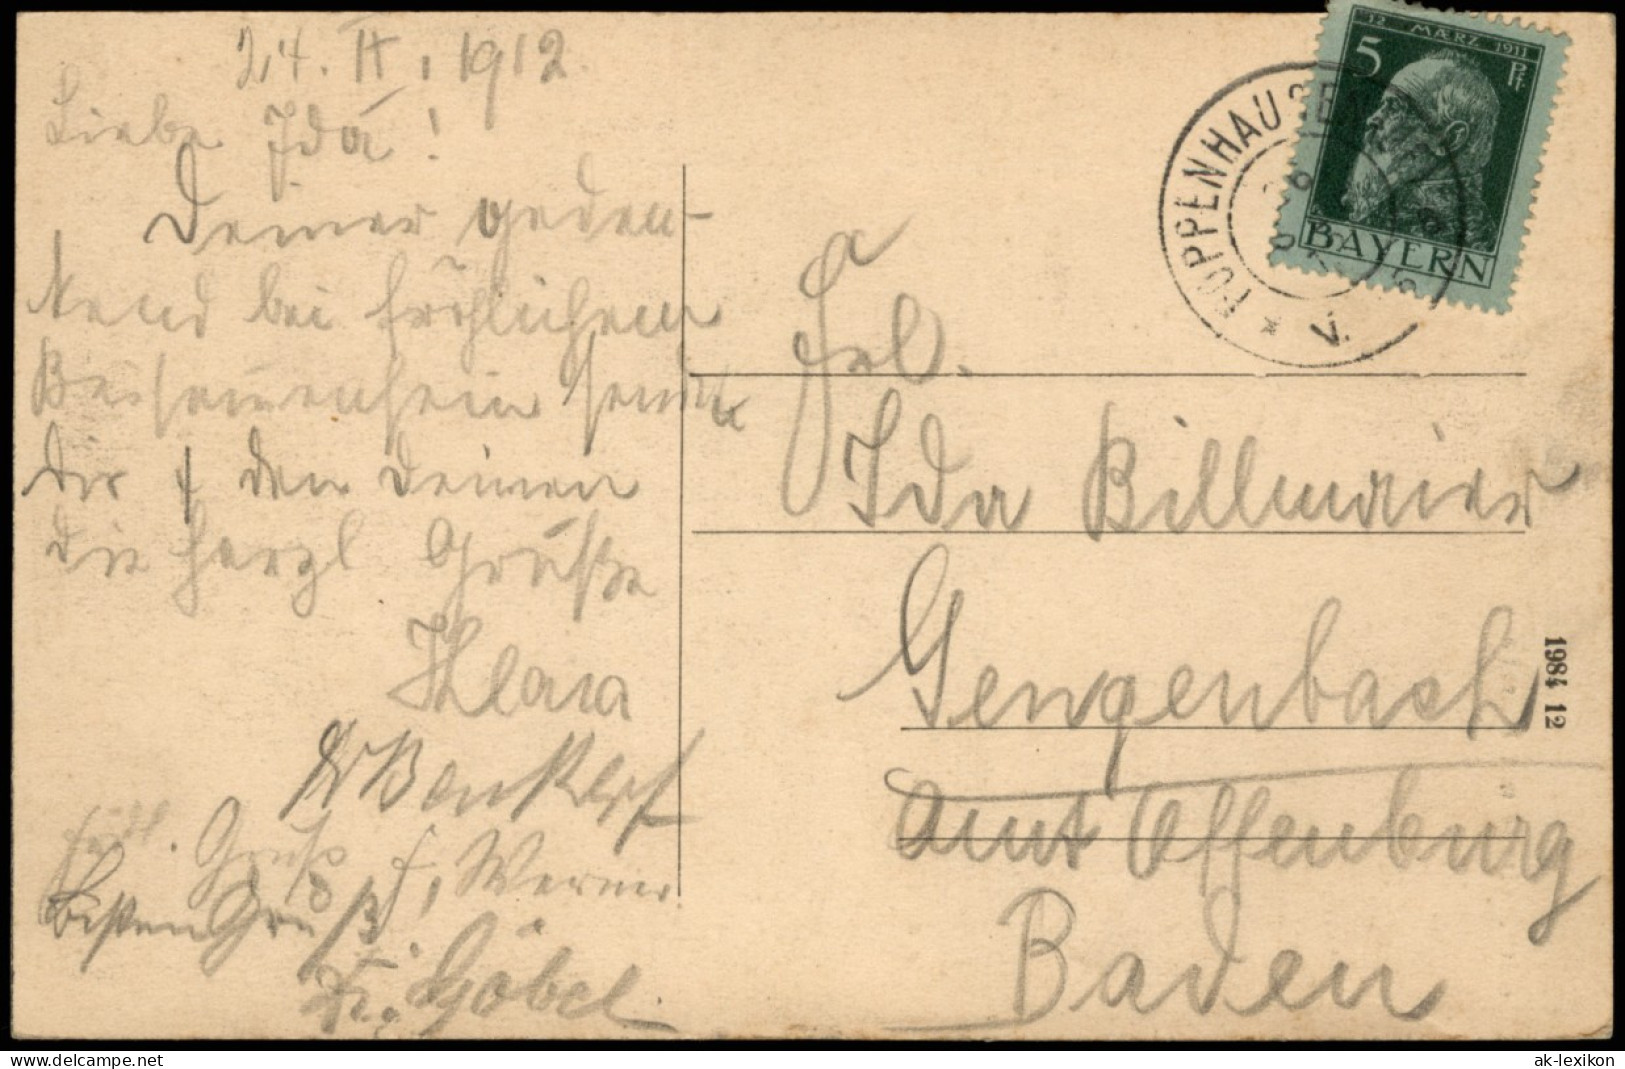 24. II. 1912
Liebe Ida!
Deiner geden-
kend bei fröhlichem
Beisammensein sende
dir & den Deinen
die herzl Grüße
Klara
Gruß F. Werner
Besten Gruß
Fr. Göbel
12 MÆRZ 1911
5 Pf.
BAYERN
POPPENHAUSEN
V.
Frl.
Ida Billmaier
Gengenbach
Amt Offenburg
Baden
1984 12
www.delcampe.net
ak-lexikon